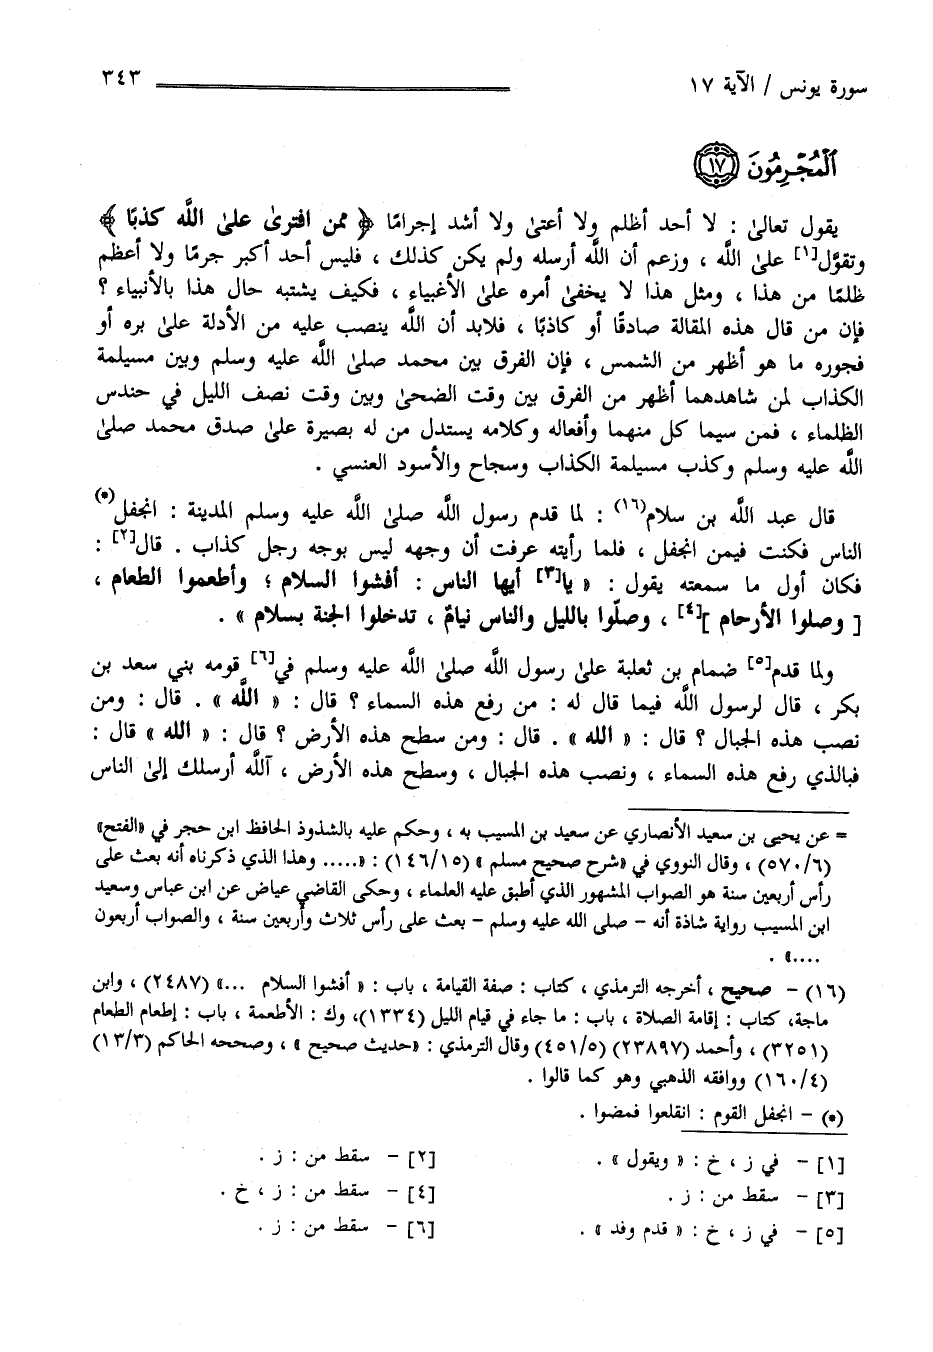 سورة يونس / الآية ١٧ ٣٤٣
ٱلْمُجْرِمُونَ ١٧
يقول تعالىٰ : لا أحد أظلم ولا أعتىٰ ولا أشد إجرامًا ﴿ ممن افترىٰ علىٰ اللَّه كذبًا ﴾
وتقوَّل[١] علىٰ اللَّه ، وزعم أن اللَّه أرسله ولم يكن كذلك ، فليس أحد أكبر جرمًا ولا أعظم
ظلمًا من هذا ، ومثل هذا لا يخفىٰ أمره علىٰ الأغبياء ، فكيف يشتبه حال هذا بالأنبياء ؟
فإن من قال هذه المقالة صادقًا أو كاذبًا ، فلابد أن اللَّه ينصب عليه من الأدلة علىٰ بره أو
فجوره ما هو أظهر من الشمس ، فإن الفرق بين محمد صلىٰ اللَّه عليه وسلم وبين مسيلمة
الكذاب لمن شاهدهما أظهر من الفرق بين وقت الضحىٰ وبين وقت نصف الليل في حندس
الظلماء ، فمن سيما كل منهما وأفعاله وكلامه يستدل من له بصيرة علىٰ صدق محمد صلىٰ
اللَّه عليه وسلم وكذب مسيلمة الكذاب وسجاح والأسود العنسي .
قال عبد اللَّه بن سلام(١٦) : لما قدم رسول اللَّه صلىٰ اللَّه عليه وسلم المدينة : انجفل(*)
الناس فكنت فيمن انجفل ، فلما رأيته عرفت أن وجهه ليس بوجه رجل كذاب . قال[٢] :
فكان أول ما سمعته يقول : « يا[٣] أيها الناس : أفشوا السلام ؛ وأطعموا الطعام ،
[ وصلوا الأرحام ][٤] ، وصلّوا بالليل والناس نيامٌ ، تدخلوا الجنة بسلام » .
ولما قدم[٥] ضمام بن ثعلبة علىٰ رسول اللَّه صلىٰ اللَّه عليه وسلم في[٦] قومه بني سعد بن
بكر ، قال لرسول اللَّه فيما قال له : من رفع هذه السماء ؟ قال : « اللَّه » . قال : ومن
نصب هذه الجبال ؟ قال : « الله » . قال : ومن سطح هذه الأرض ؟ قال : « الله » قال :
فبالذي رفع هذه السماء ، ونصب هذه الجبال ، وسطح هذه الأرض ، آللَّه أرسلك إلىٰ الناس
= عن يحيى بن سعيد الأنصاري عن سعيد بن المسيب به ، وحكم عليه بالشذوذ الحافظ ابن حجر في «الفتح»
(٥٧٠/٦) ، وقال النووي في «شرح صحيح مسلم » (١٤٦/١٥) : «..... وهذا الذي ذكرناه أنه بعث على
رأس أربعين سنة هو الصواب المشهور الذي أطبق عليه العلماء ، وحكى القاضي عياض عن ابن عباس وسعيد
ابن المسيب رواية شاذة أنه – صلى الله عليه وسلم – بعث على رأس ثلاث وأربعين سنة ، والصواب أربعون
....» .
(١٦) – صحيح ، أخرجه الترمذي ، كتاب : صفة القيامة ، باب : « أفشوا السلام ...» (٢٤٨٧) ، وابن
ماجة، كتاب : إقامة الصلاة ، باب : ما جاء في قيام الليل (١٣٣٤)، وك : الأطعمة ، باب : إطعام الطعام
(٣٢٥١) ، وأحمد (٢٣٨٩٧) (٤٥١/٥) وقال الترمذي : «حديث صحيح » ، وصححه الحاكم (١٣/٣)
(١٦٠/٤) ووافقه الذهبي وهو كما قالوا .
(*) – انجفل القوم : انقلعوا فمضوا .
[١] – في ز ، خ : « ويقول » . [٢] – سقط من : ز .
[٣] – سقط من : ز . [٤] – سقط من : ز ، خ .
[٥] – في ز ، خ : « قدم وفد » . [٦] – سقط من : ز .